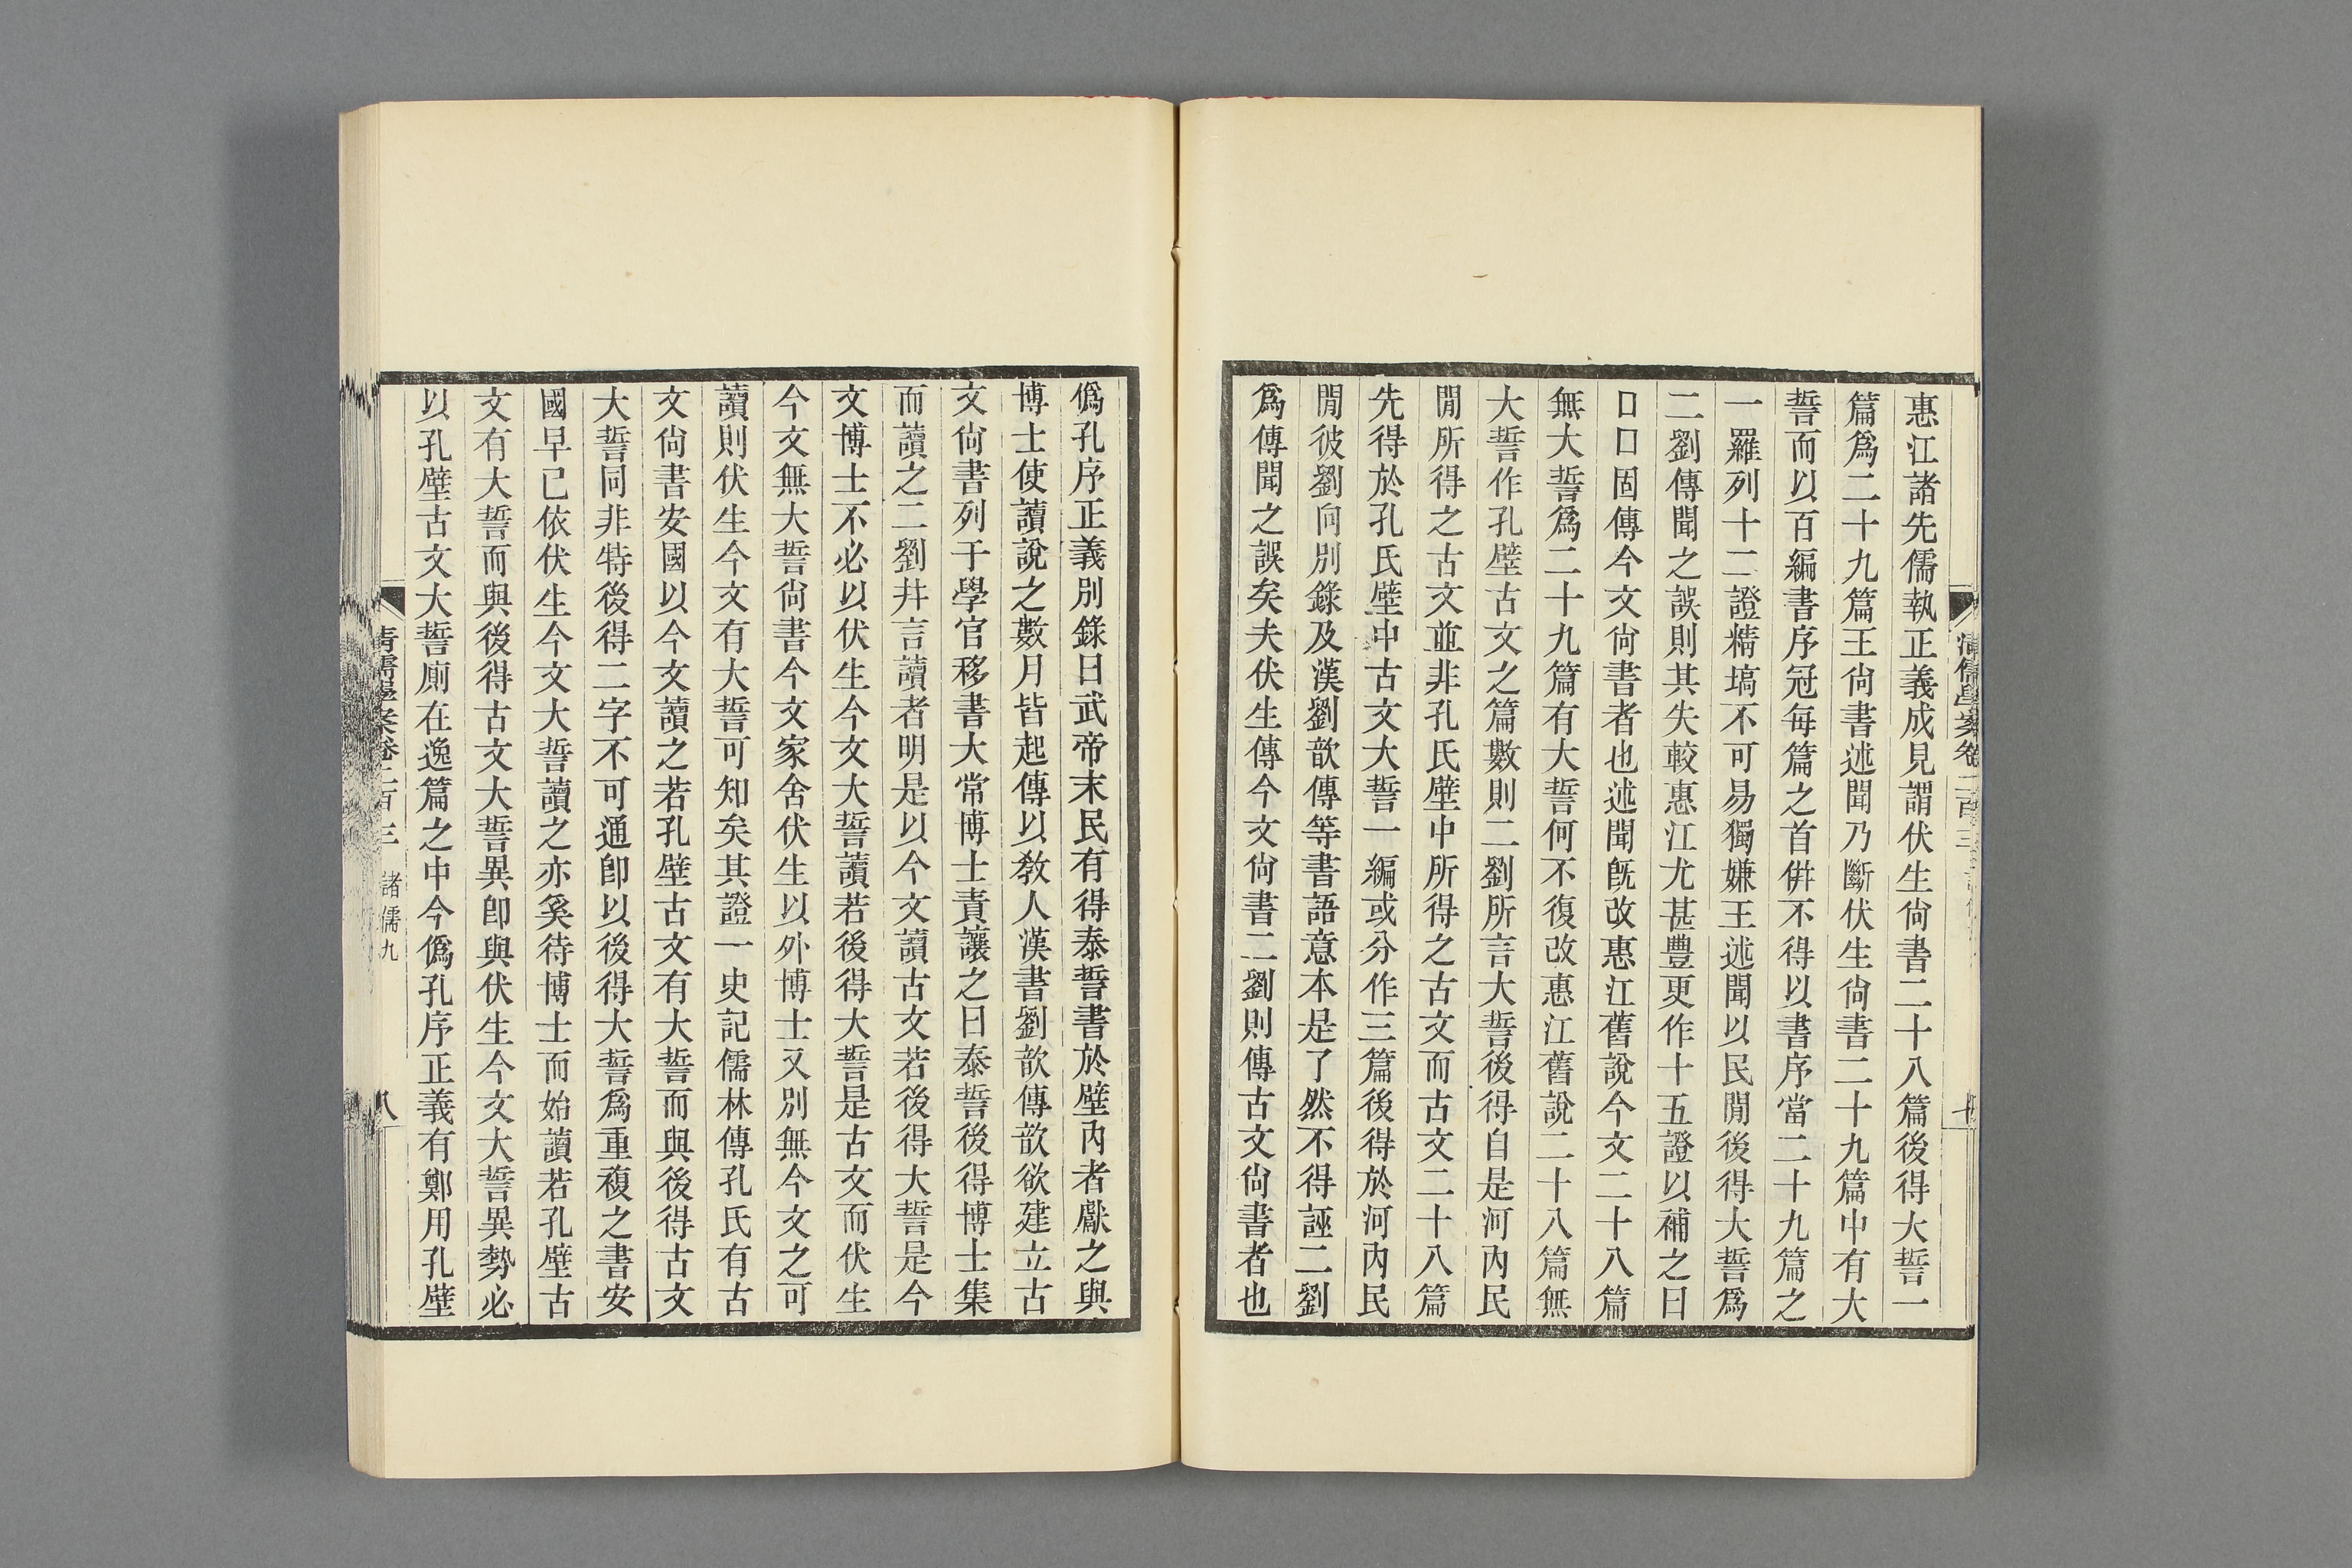 惠江諸先儒執正義成見謂伏生尙書二十八篇後得大誓一
篇爲二十九篇王尙書述聞乃斷伏生尙書二十九篇中有大
誓而以百編書序冠每篇之首倂不得以書序當二十九篇之
一羅列十二證精塙不可易獨嫌王述聞以民閒後得大誓爲
二劉傳聞之誤則其失較惠江尤甚豐更作十五證以補之曰
口口固傳今文尙書者也述聞旣改惠江舊說今文二十八篇
無大誓爲二十九篇有大誓何不復改惠江舊說二十八篇無
大誓作孔壁古文之篇數則二劉所言大誓後得自是河內民
閒所得之古文並非孔氏壁中所得之古文而古文二十八篇
先得於孔氏壁中古文大誓一編或分作三篇後得於河內民
閒彼劉向別錄及漢劉歆傳等書語意本是了然不得誣二劉
爲傳聞之誤矣夫伏生傳今文尙書二劉則傳古文尙書者也
僞孔序正義別錄曰武帝末民有得泰誓書於壁內者獻之與
博士使讀說之數月皆起傳以敎人漢書劉歆傳歆欲建立古
文尙書列于學官移書大常博士責讓之曰泰誓後得博士集
而讀之二劉幷言讀者明是以今文讀古文若後得大誓是今
文博士不必以伏生今文大誓讀若後得大誓是古文而伏生
今文無大誓尙書今文家舍伏生以外博士又別無今文之可
讀則伏生今文有大誓可知矣其證一史記儒林傳孔氏有古
文尙書安國以今文讀之若孔壁古文有大誓而與後得古文
大誓同非特後得二字不可通卽以後得大誓爲重複之書安
國早已依伏生今文大誓讀之亦奚待博士而始讀若孔壁古
文有大誓而與後得古文大誓異卽與伏生今文大誓異勢必
以孔壁古文大誓廁在逸篇之中今僞孔序正義有鄭用孔壁
清儒學案卷二百三 諸儒九 八